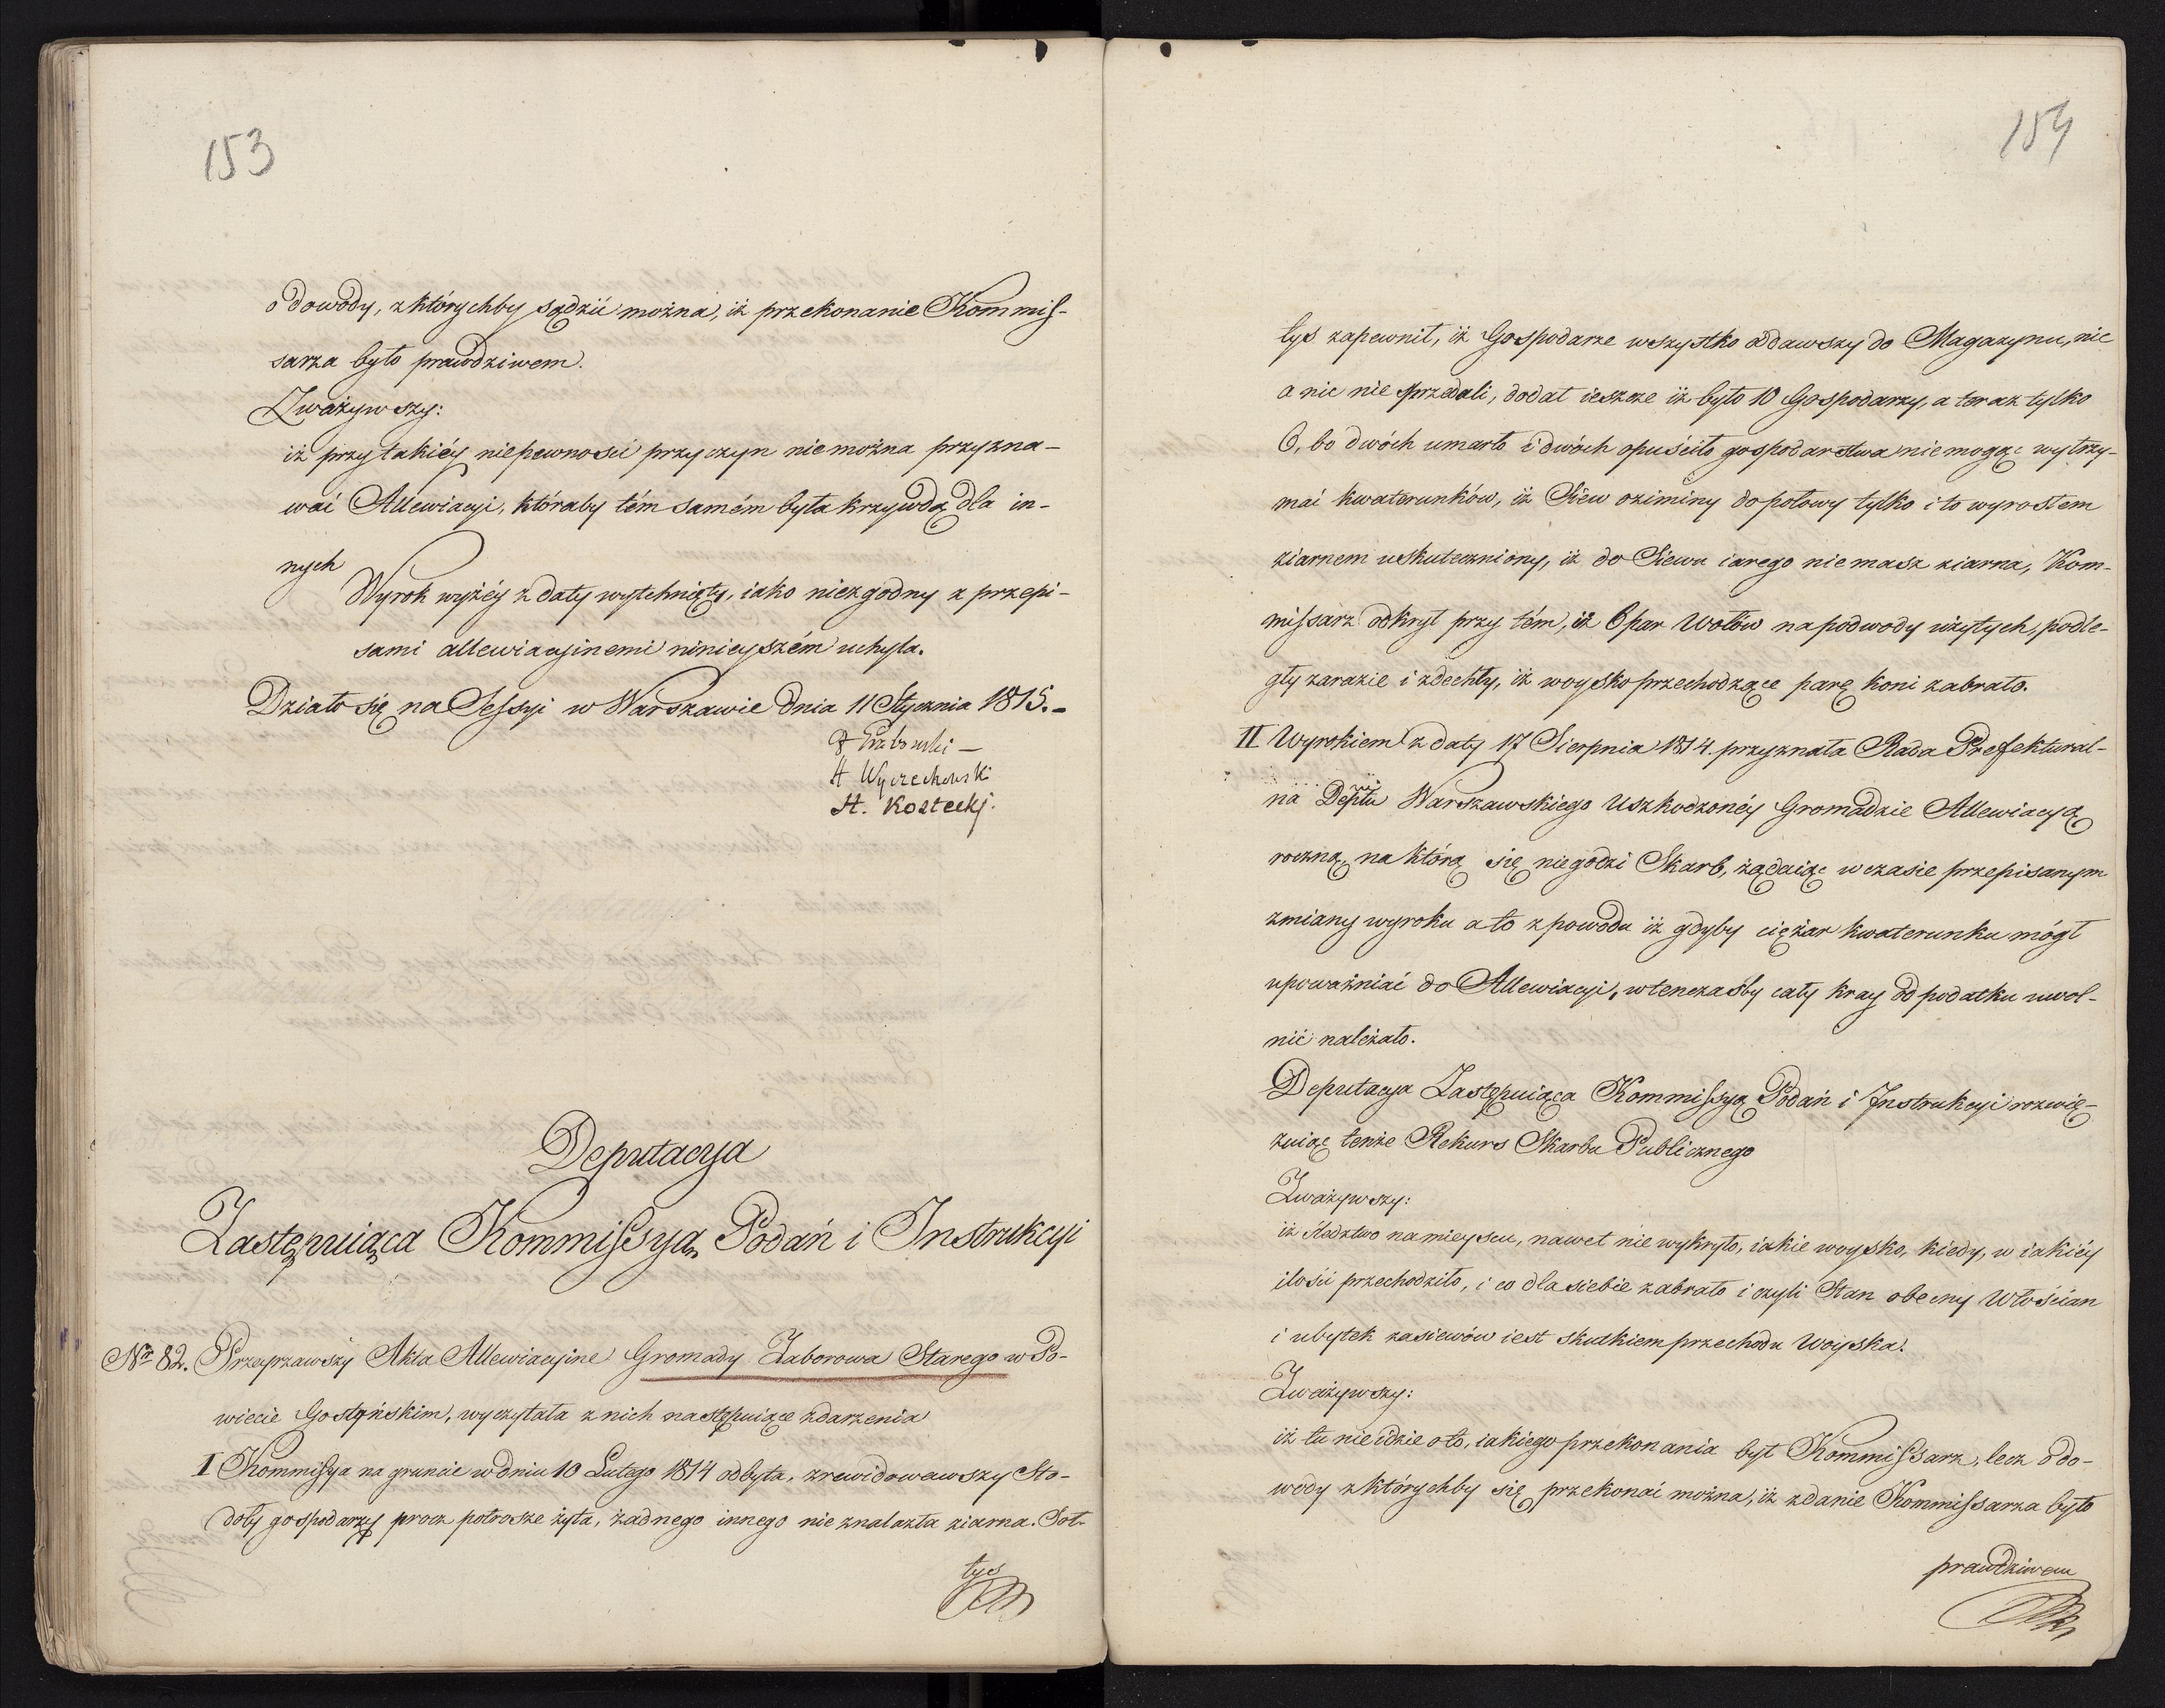 153
o dowody, z których by sądzić można, iż przekonanie Kommis-
sarza było prawdziwem.
Zważywszy:
iż przy takiéy niepewności przyczyn nie można przyzna-
wać Allewiacyi, któraby tém samém była krzywdą dla in-
nych
Wyrok wyżéy z daty wytchnięty, iako niezgodny z przepi-
sami allewiacyinemi ninieyszém uchyla.
Działo się na Sessyi w Warszawie dnia 11 Stycznia 1815.-
A Wyczechowski
A. Kozteckj.
Deputacya
Zastępuiąca Kommissyą Podań i Instrukcyi
Nr 82. Przeyrzawszy Akta Allewiacyine Gromady Zaborowa Starego w Po-
wiecie Gostyńskim, wyczytała z nich następuiące zdarzenia
I Kommissya na gruncie w dniu 10 Lutego 1814 odbyta, zrewidowawszy Sto-
doły gospodarzy procz potrosze żyta, żadnego innego nie znalazła ziarna. Soł-
tys
154
tys zapewnił, iż Gospodarze wszystko oddawszy do Magazynu, nic
a nic nie sprzedali, dodał ieszcze iż było 10 Gospodarzy, a teraz tylko
6, bo dwóch umarło i dwóch opuściło gospodarstwa nie mogąc wytrzy-
mać kwaterunków, iż Siew oziminy do połowy tylko i to wyrostem
ziarnem uskuteczniony, iż do Siewu iarego nie masz ziarna, Kom-
missarz odkrył przy tém, iż 6 par Wołów na podwody użytych, podle-
gły zarazie i zdechły, iż woysko przechodzące parę koni zabrało.
II Wyrokiem z daty 17 Sierpnia 1814. przyznała Rada Prefektural-
na Deptu Warszawskiego Uszkodzonéy Gromadzie Allewiacyą
roczną, na którą się nie godzi Skarb, żądaiąc w czasie przepisanym
zmiany wyroku a to z powodu iż gdyby ciężar kwaterunku mógł
upoważniać do Allewiacyi, wtenczasby cały kray od podatku uwol-
nić należało.
Deputacya Zastępuiąca Kommissyą Podań i Instrukcyi rozwię-
zuiąc tenże Rekurs Skarbu Publicznego
Zważywszy:
iż śledztwo na mieyscu, nawet nie wykryło, iakie woysko, kiedy, w iakiéy
ilości przechodziło, i co dla siebie zabrało i czyli Stan obecny Włościan
i ubytek zasiewów iest skutkiem przechodu Woyska.
Zważywszy:
iż tu nie idzie o to, iakiego przekonania był Kommissarz, lecz o do-
wody z których by się przekonać można, iż zdanie Kommissarza było
prawdziwem